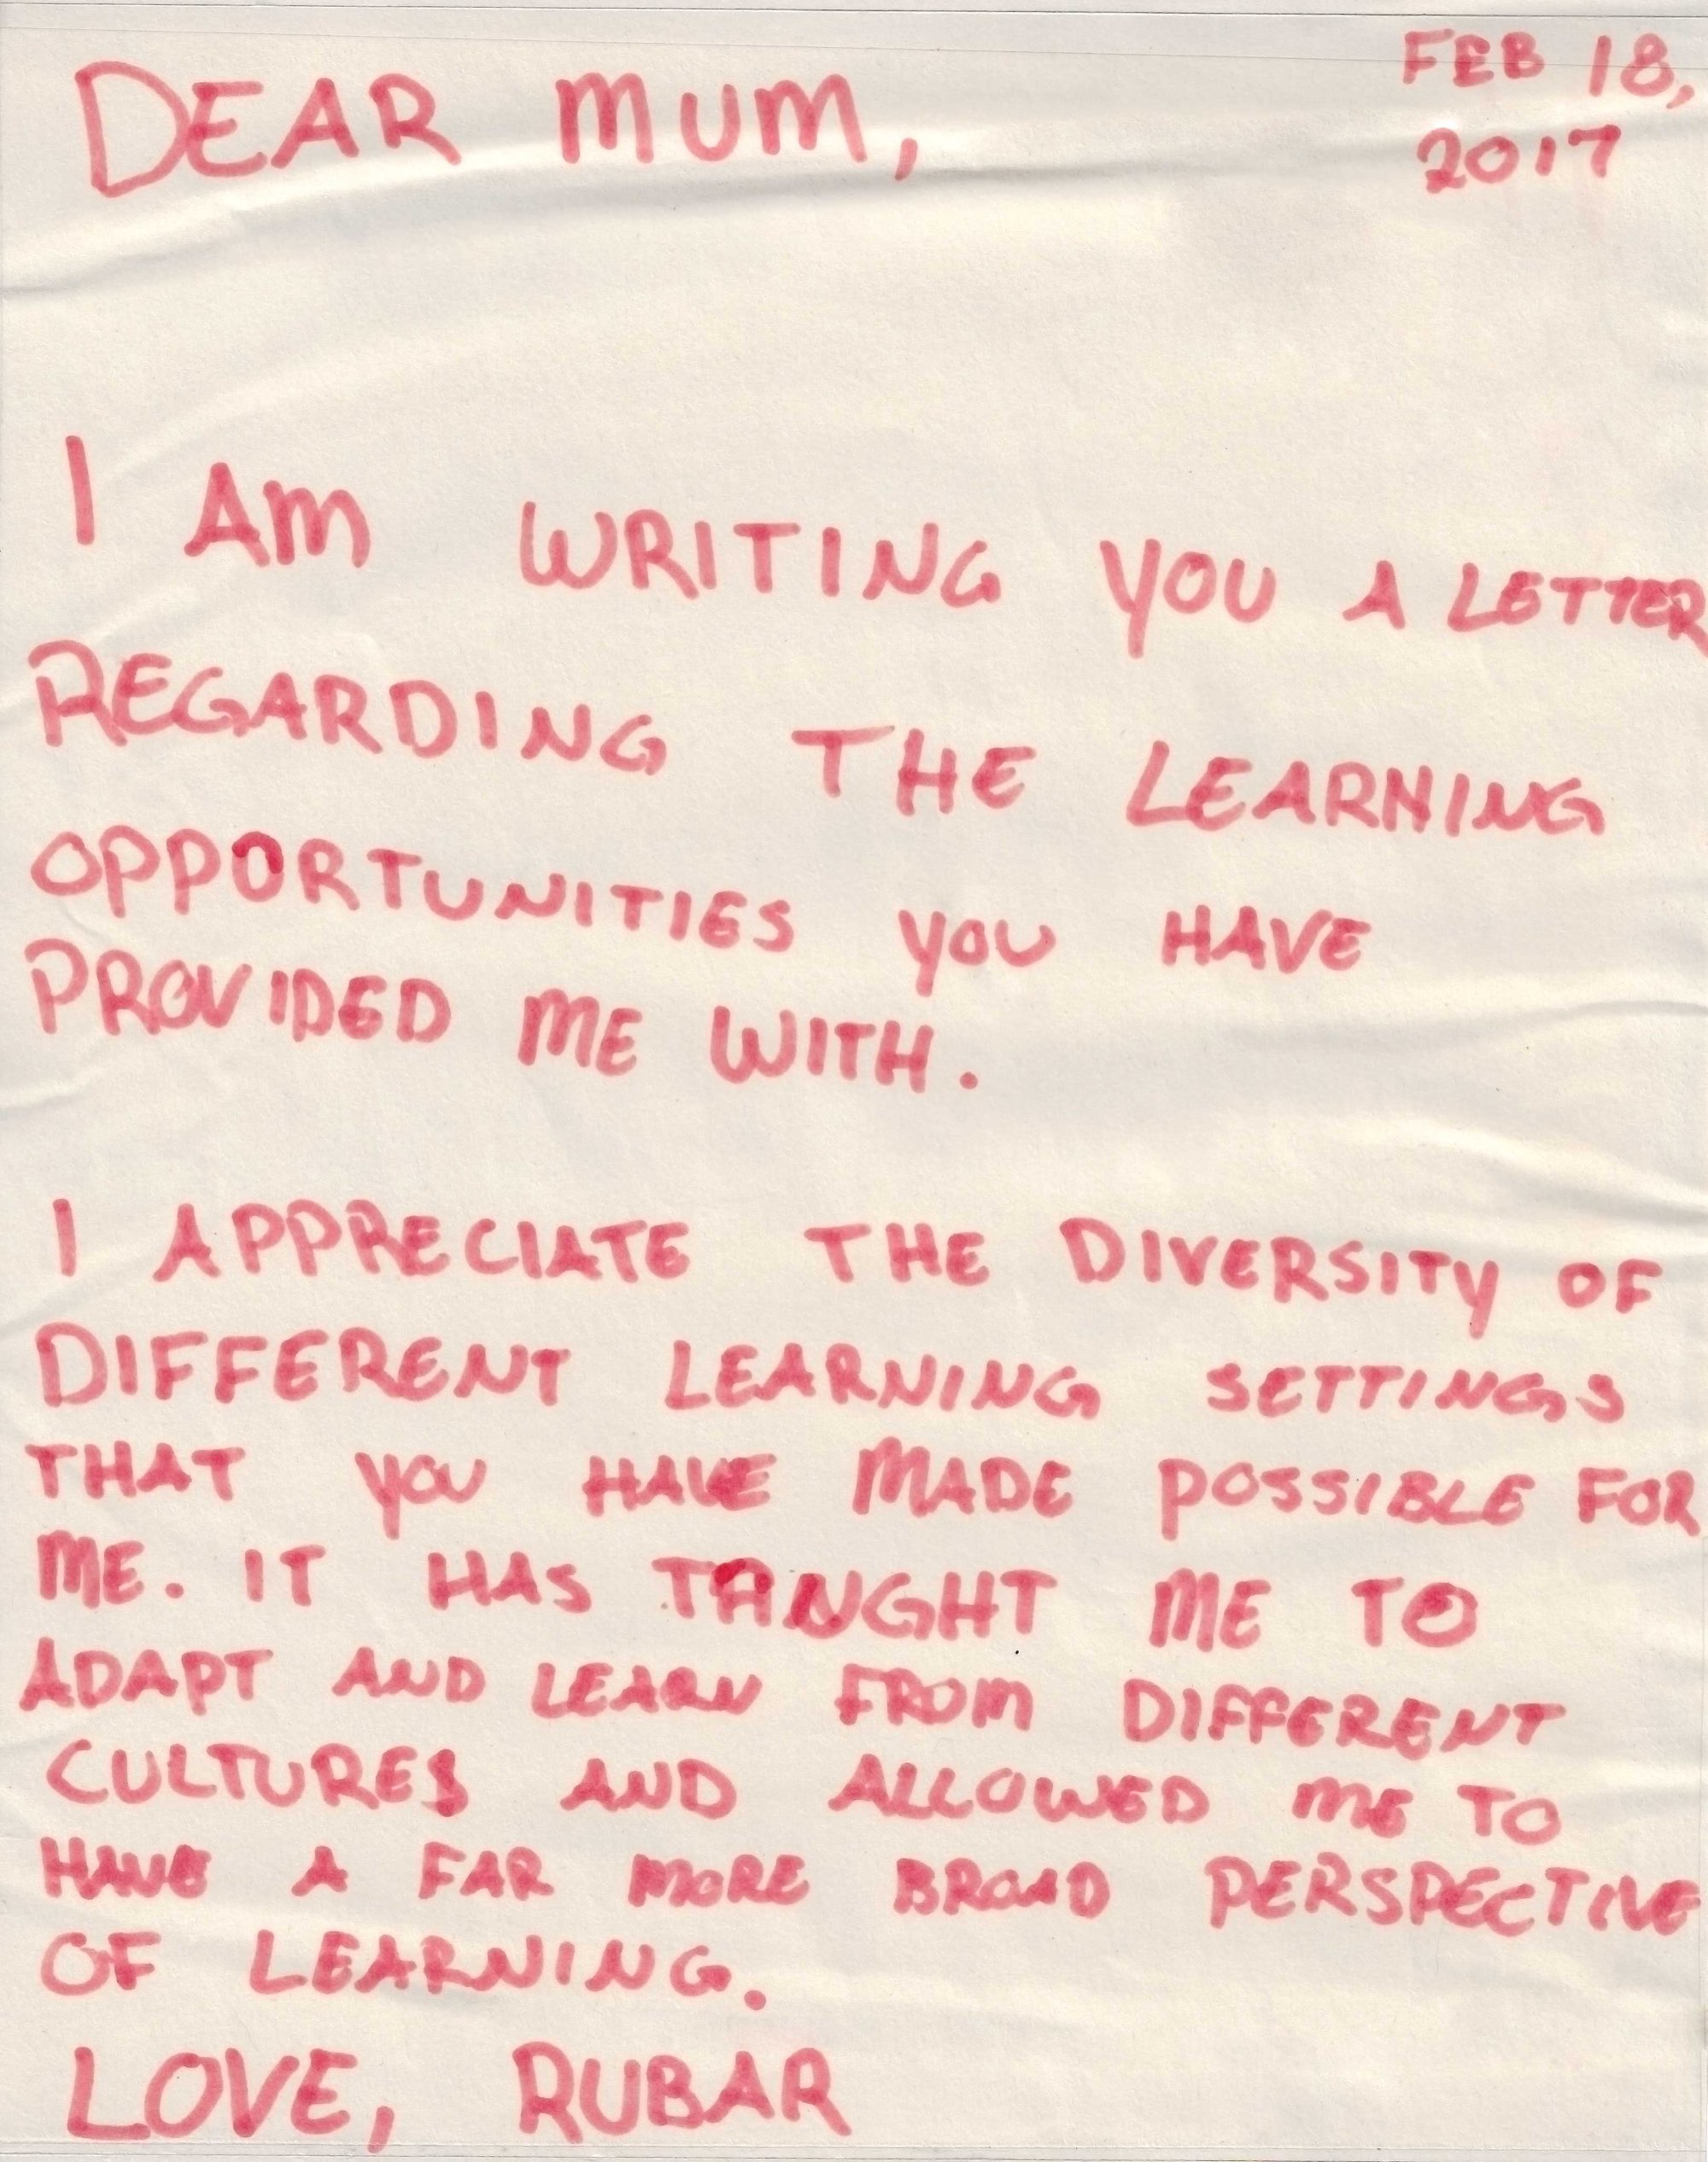 FEB 18,
2017
DEAR MUM,
I AM WRITING YOU A LETTER
REGARDING THE LEARNING
OPPORTUNITIES YOU HAVE
PROVIDED ME WITH.
I APPRECIATE THE DIVERSITY OF
DIFFERENT LEARNING SETTINGS
THAT YOU HAVE MADE POSSIBLE FOR
ME. IT HAS TANGHT ME TO
ADAPT AND LEARN FROM DIFFERENT
CULTURES AND ALLOWED ME TO
HAVE A FAR MORE BROAD PERSPECTIVE
OF LEARNING.
LOVE, RUBAR